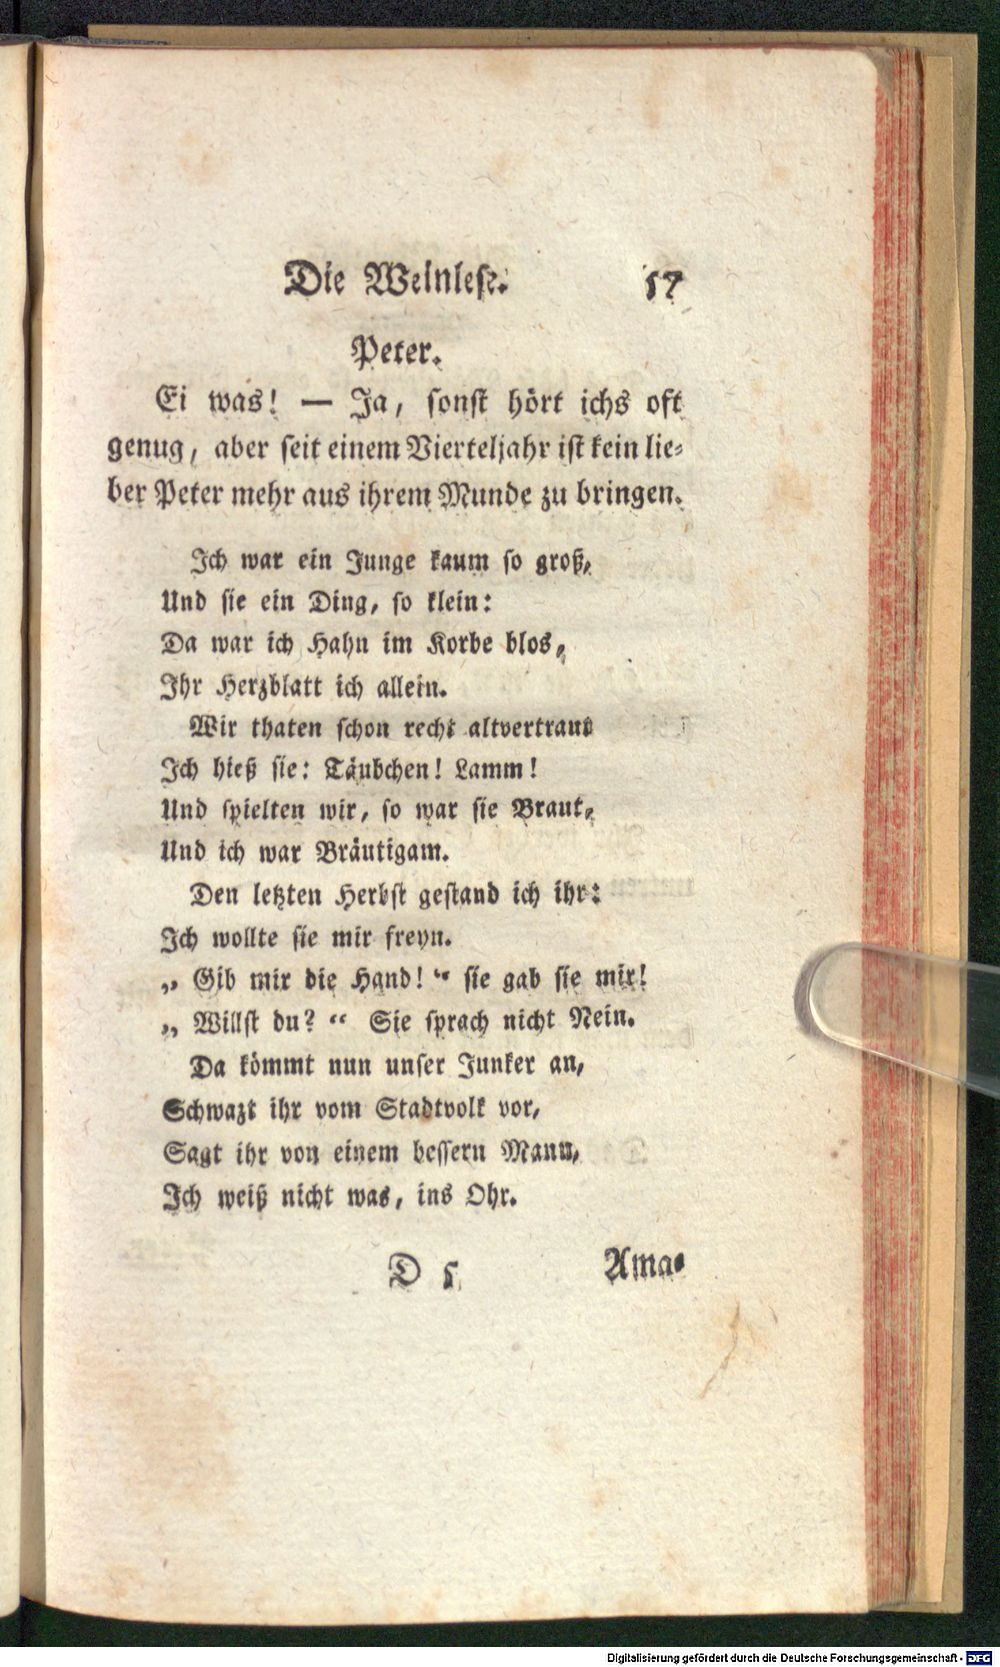 Die Weinlese. 57
Peter.
Ei was! — Ja, sonst hört ichs oft
genug, aber seit einem Vierteljahr ist kein lie-
ber Peter mehr aus ihrem Munde zu bringen.
Ich war ein Junge kaum so groß,
Und sie ein Ding, so klein:
Da war ich Hahn im Korbe blos,
Ihr Herzblatt ich allein.
Wir thaten schon recht altvertraut
Ich hieß sie: Täubchen! Lamm!
Und spielten wir, so war sie Braut,
Und ich war Bräutigam.
Den letzten Herbst gestand ich ihr:
Ich wollte sie mir freyn.
„ Gib mir die Hand! “ sie gab sie mir!
„ Willst du? “ Sie sprach nicht Nein.
Da kömmt nun unser Junker an,
Schwazt ihr vom Stadtvolk vor,
Sagt ihr von einem bessern Mann,
Ich weiß nicht was, ins Ohr.
D 5 Ama-
Digitalisierung gefördert durch die Deutsche Forschungsgemeinschaft - DFG